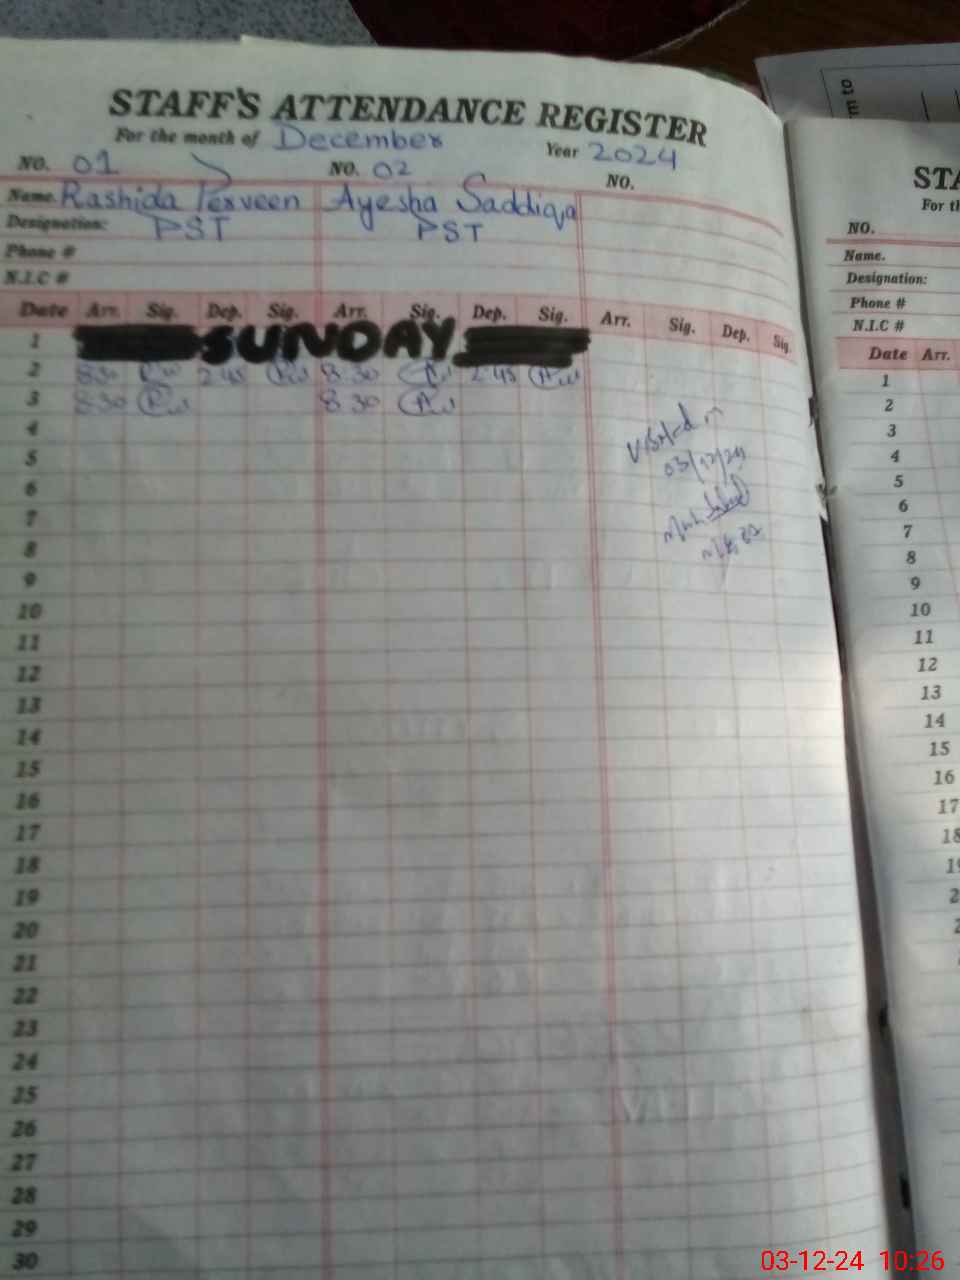 STAFF'S ATTENDANCE REGISTER
For the month of December Year 2024
NO. 01 NO. 02 NO.
Name. Rashida Perveen Ayesha Saddiqa
Designation: PST PST
Phone #
N.I.C #
Date Arr. Sig. Dep. Sig. Arr. Sig. Dep. Sig. Arr. Sig. Dep. Sig.
1 SUNDAY
2 8:30 2:45 8:30 2:45
3 8:30 8:30
4
5
6
7
8
9
10
11
12
13
14
15
16
17
18
19
20
21
22
23
24
25
26
27
28
29
30
Visited
03/12/24
m to
STA
For th
NO.
Name.
Designation:
Phone #
N.I.C #
Date Arr.
1
2
3
4
5
6
7
8
9
10
11
12
13
14
15
16
17
18
19
2
2
03-12-24 10:26